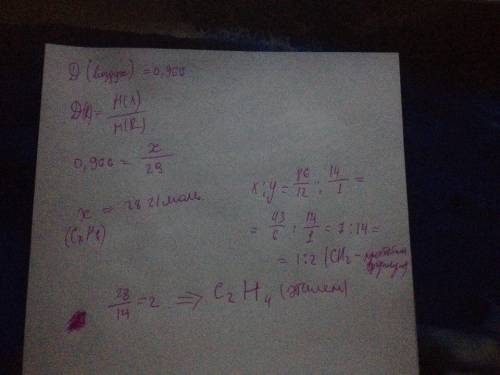 D (воздух) = 0,966
D(x) = M(X) / M(R)
0,966 = x / 29
x = 28 г/моль
(CxHy)
x : y = 86/12 : 14/1 =
= 43/6 : 14/1 = 7 : 14 =
= 1:2 (CH2 - простейшая формула)
28/14 = 2 ⇒ C2H4 (этилен)